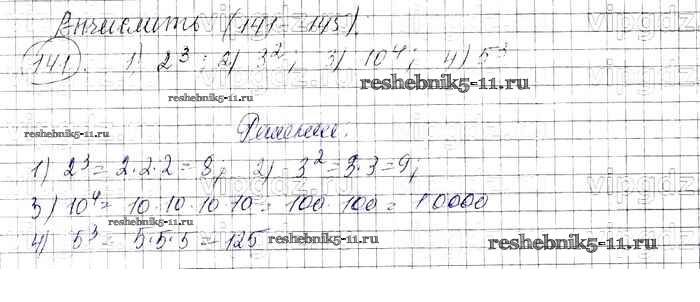 Вычислить (141-145).
141. 1) 2³; 2) 3²; 3) 10⁴; 4) 5³
reshebnik5-11.ru
reshebnik5-11.ru
reshebnik5-11.ru
Решение.
1) 2³ = 2·2·2 = 8; 2) 3² = 3·3 = 9;
3) 10⁴ = 10·10·10·10 = 100·100 = 10000
reshebnik5-11.ru
4) 5³ = 5·5·5 = 125
reshebnik5-11.ru
reshebnik5-11.ru
vipgdz
vipgdz
vipgdz